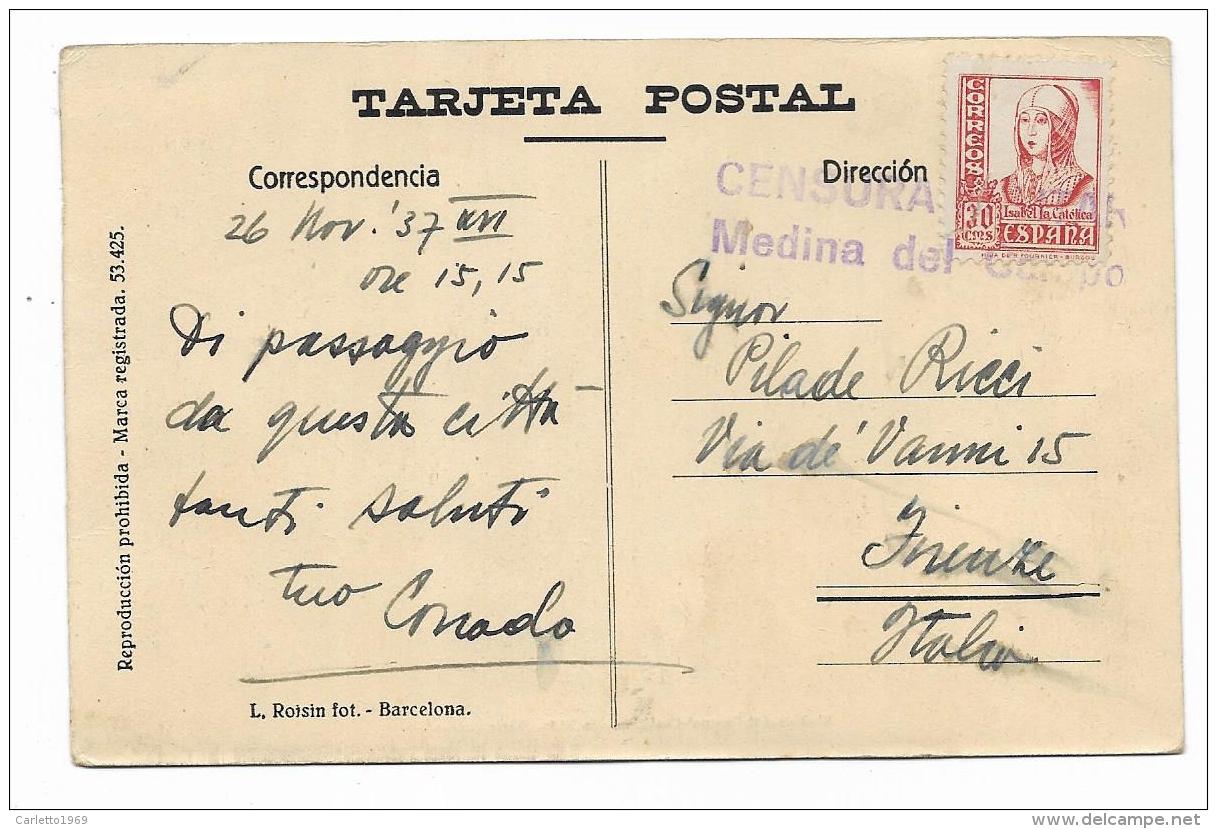 TARJETA POSTAL
Correspondencia
26 Nov. '37 XVI
ore 15,15
Di passaggio
da questa città
tanti saluti
tuo Corrado
L. Roisin fot. - Barcelona.
Reproducción prohibida - Marca registrada. 53.425.
Dirección
CENSURA
Medina del Campo
CORREOS
30
CTMS
Isabel la Católica
ESPAÑA
FOURNIER - BURGOS
Signor
Pilade Ricci
Via de' Vanni 15
Firenze
Italia
Carletto1969
delcampe.net